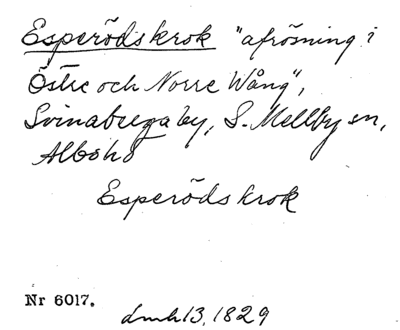 Esperöds krok "afrösning i
Östre och Norre Wång",
Svinaberga by, S. Mellby sn,
Albo hd
Esperöds krok
Nr 6017.
dmh 13, 1829